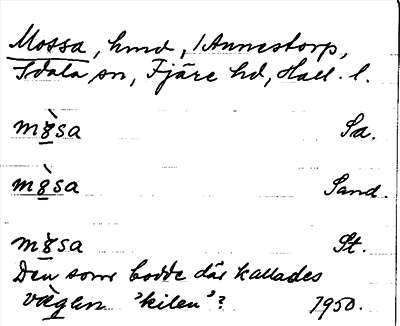 Mossa, hmd, i Annestorp,
Idala sn, Fjäre hd, Hall. l.
mòsa Sa.
mòsa Sand.
mòsa St.
Den som bodde där kallades
"kilen"? 1950.